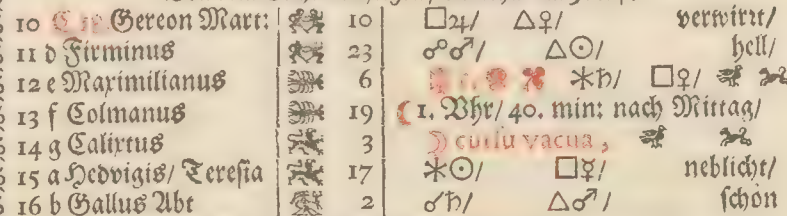 10 c Gereon Mart: 10 □♃/ △♀/ verwirrt/
11 d Firminus 23 ☍♂/ △☉/ hell/
12 e Maximilianus 6 ⚹♄/ □♀/
13 f Colmanus 19 1. Vhr/ 40. min: nach Mittag/
14 g Calixtus 3 ☽ cursu vacua,
15 a Hedvigis/ Teresia 17 ⚹☉/ □☿/ neblicht/
16 b Gallus Abt 2 ☌♄/ △♂/ schön